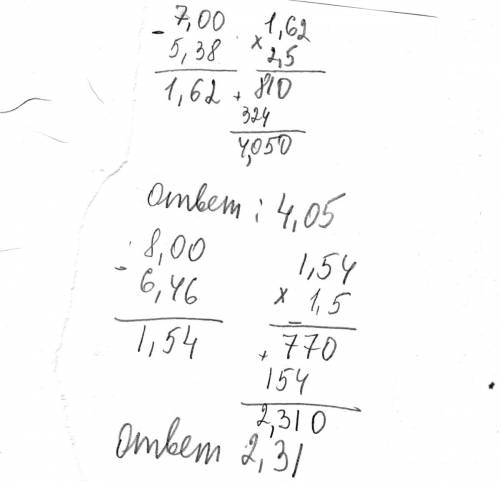 - 7,00
5,38
1,62
× 1,62
2,5
+ 810
324
4,050
ответ : 4,05
- 8,00
6,46
1,54
1,54
× 1,5
+ 770
154
2,310
ответ 2,31